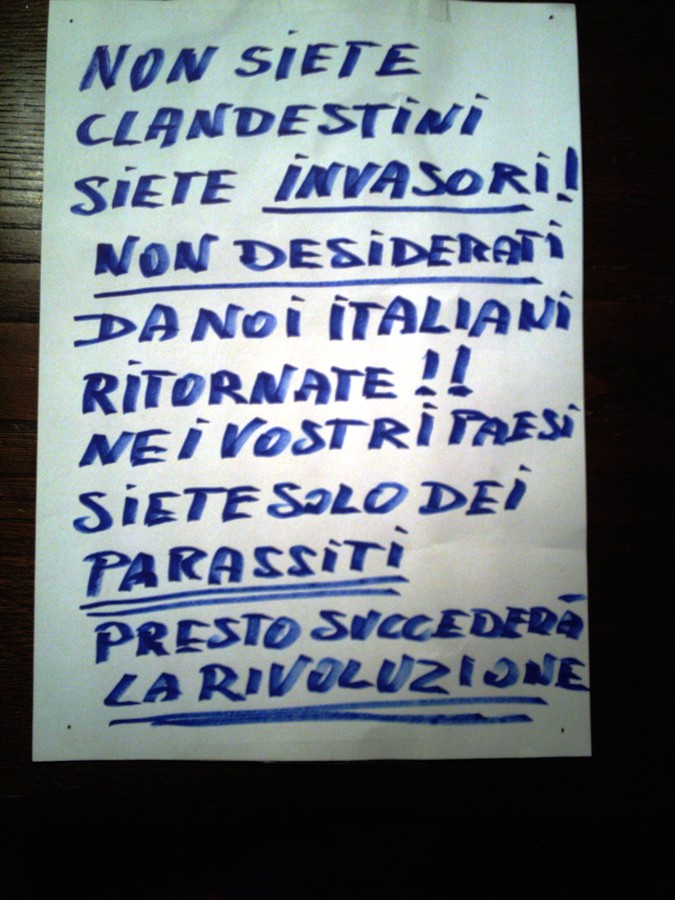 NON SIETE
CLANDESTINI
SIETE INVASORI!
NON DESIDERATI
DA NOI ITALIANI
RITORNATE!!
NEI VOSTRI PAESI
SIETE SOLO DEI
PARASSITI
PRESTO SUCCEDERÀ
LA RIVOLUZIONE